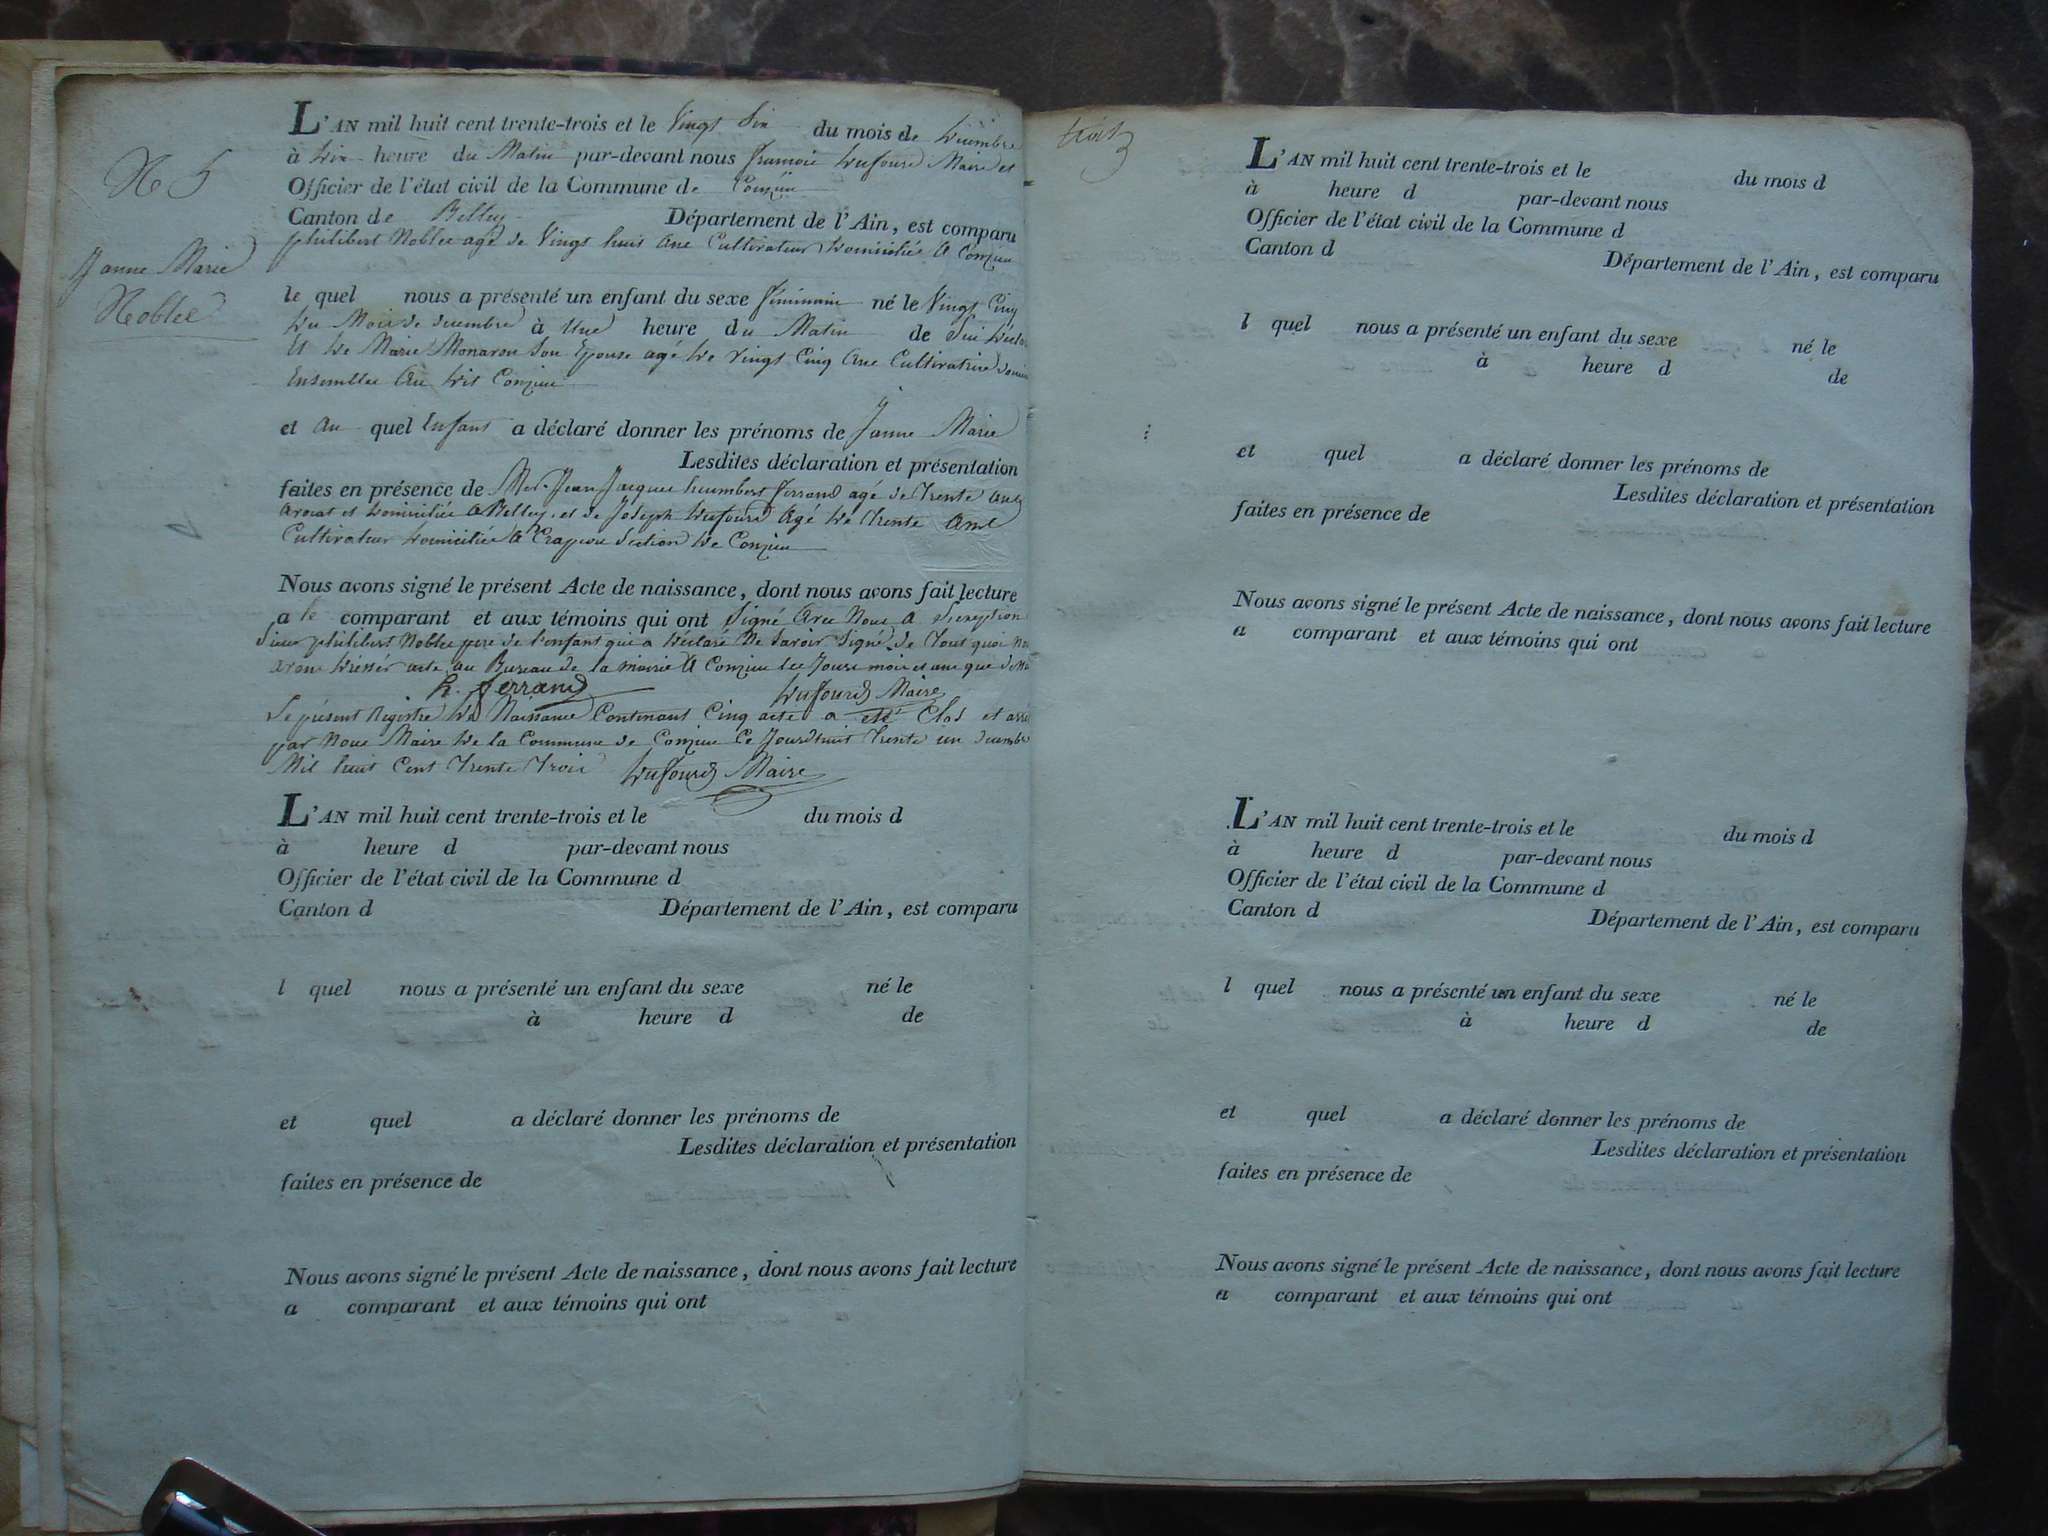 N 5
Janne Marie
Noblet
L'AN mil huit cent trente-trois et le Vingt Six du mois de Décembre
à Dix heure du Matin par-devant nous François Dufour Maire et
Officier de l'état civil de la Commune de Conzieu
Canton de Belley Département de l'Ain, est comparu
philibert Noblet agé de Vingt huit Ans Cultivateur Domicilié A Conzieu
le quel nous a présenté un enfant du sexe féminin né le Vingt Cinq
Du Mois de decembre à Une heure du Matin de
Et De Marie Monavon Son Epouse agé De Vingt Cinq Ans Cultivatrice
Ensembles Au Dit Conzieu
et Au quel Enfant a déclaré donner les prénoms de Janne Marie
Lesdites déclaration et présentation
faites en présence de Jean Jacques humbert ferrand agé de Trente Ans
Avocat et Domicilié A Belley, et de Joseph Dufour Agé De Trente Ans
Cultivateur Domicilié A Crapeou Section De Conzieu
Nous avons signé le présent Acte de naissance, dont nous avons fait lecture
a le comparant et aux témoins qui ont Signé Avec Nous A
Sieur philibert Noblet pere de l'enfant qui a Déclaré Ne Savoir Signé. de Tout quoi
avons Dressér acte au Bureau de la mairie A Conzieu Les Jours mois et ans que
h. ferrand Dufour Maire
Le présent Registre De Naissance Contenant Cinq acte a eté Clos et
par Nous Maire De la Commune de Conzieu Ce Jourdhuit Trente un decembre
Mil huit Cent Trente Trois Dufour Maire
L'AN mil huit cent trente-trois et le du mois d
à heure d par-devant nous
Officier de l'état civil de la Commune d
Canton d Département de l'Ain, est comparu
l quel nous a présenté un enfant du sexe né le
à heure d de
et quel a déclaré donner les prénoms de
Lesdites déclaration et présentation
faites en présence de
Nous avons signé le présent Acte de naissance, dont nous avons fait lecture
a comparant et aux témoins qui ont
L'AN mil huit cent trente-trois et le du mois d
à heure d par-devant nous
Officier de l'état civil de la Commune d
Canton d Département de l'Ain, est comparu
l quel nous a présenté un enfant du sexe né le
à heure d de
et quel a déclaré donner les prénoms de
Lesdites déclaration et présentation
faites en présence de
Nous avons signé le présent Acte de naissance, dont nous avons fait lecture
a comparant et aux témoins qui ont
L'AN mil huit cent trente-trois et le du mois d
à heure d par-devant nous
Officier de l'état civil de la Commune d
Canton d Département de l'Ain, est comparu
l quel nous a présenté un enfant du sexe né le
à heure d de
et quel a déclaré donner les prénoms de
Lesdites déclaration et présentation
faites en présence de
Nous avons signé le présent Acte de naissance, dont nous avons fait lecture
a comparant et aux témoins qui ont